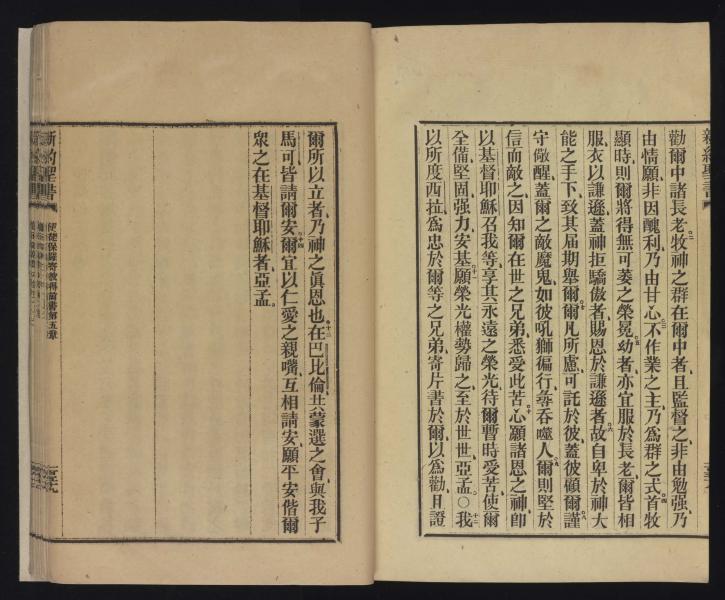 新約聖書
勸爾中諸長老、牧神之群在爾中者、且監督之、非由勉强、乃
由情願、非因醜利、乃由甘心、不作業之主、乃爲群之式、首牧
顯時、則爾將得無可萎之榮冕、幼者、亦宜服於長老、爾皆相
服、衣以謙遜、蓋神拒驕傲者、賜恩於謙遜者、故自卑於神大
能之手下、致其届期舉爾、爾凡所慮、可託於彼、蓋彼顧爾、謹
守儆醒、蓋爾之敵魔鬼、如彼吼獅徧行、尋吞噬人、爾則堅於
信而敵之、因知爾在世之兄弟、悉愛此苦、心願諸恩之神、卽
以基督耶穌召我等、享其永遠之榮光、待爾暫時受苦、使爾
全備、堅固、强力、安基、願榮光權勢歸之、至於世世、亞孟、○我
以所度西拉、爲忠於爾等之兄弟、寄片書於爾、以爲勸、且證
爾所以立者、乃神之眞恩也、在巴比倫共蒙選之會、與我子
馬可、皆請爾安、爾宜以仁愛之親嘴、互相請安、願平安偕爾
衆之在基督耶穌者、亞孟。
新約聖書
使徒保羅寄彼得前書第五章